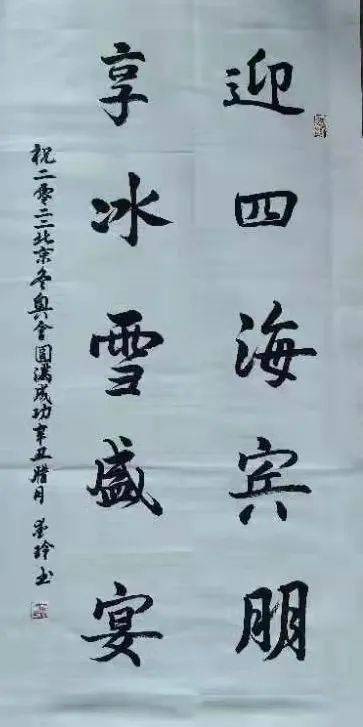 迎四海宾朋
享冰雪盛宴
祝二零二二北京冬奥会圆满成功辛丑腊月
玲书